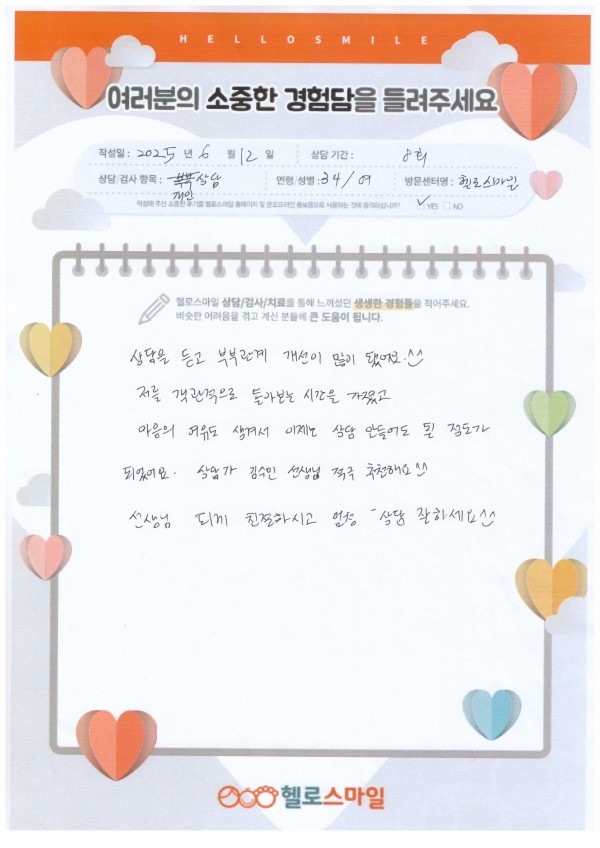 HELLOSMILE
여러분의 소중한 경험담을 들려주세요
작성일 : 2025 년 6 월 12 일 상담 기간 : 8회
상담/검사 항목 : 부부 상담 연령/성별 : 34 / 여 방문센터명 : 헬로스마일
개인
작성해 주신 소중한 후기를 헬로스마일 홈페이지 및 온오프라인 홍보용으로 사용하는 것에 동의하십니까? ✓YES □ NO
헬로스마일 상담/검사/치료를 통해 느끼셨던 생생한 경험들을 적어주세요.
비슷한 어려움을 겪고 계신 분들께 큰 도움이 됩니다.
상담을 듣고 부부관계 개선이 많이 됐어요.^^
저를 객관적으로 돌아보는 시간을 가졌고
마음의 여유도 생겨서 이제는 상담 안들어도 될 정도가
되었어요. 상담가 김수민 선생님 적극 추천해요^^
선생님 되게 친절하시고 엄청 상담 잘하세요^^
헬로스마일